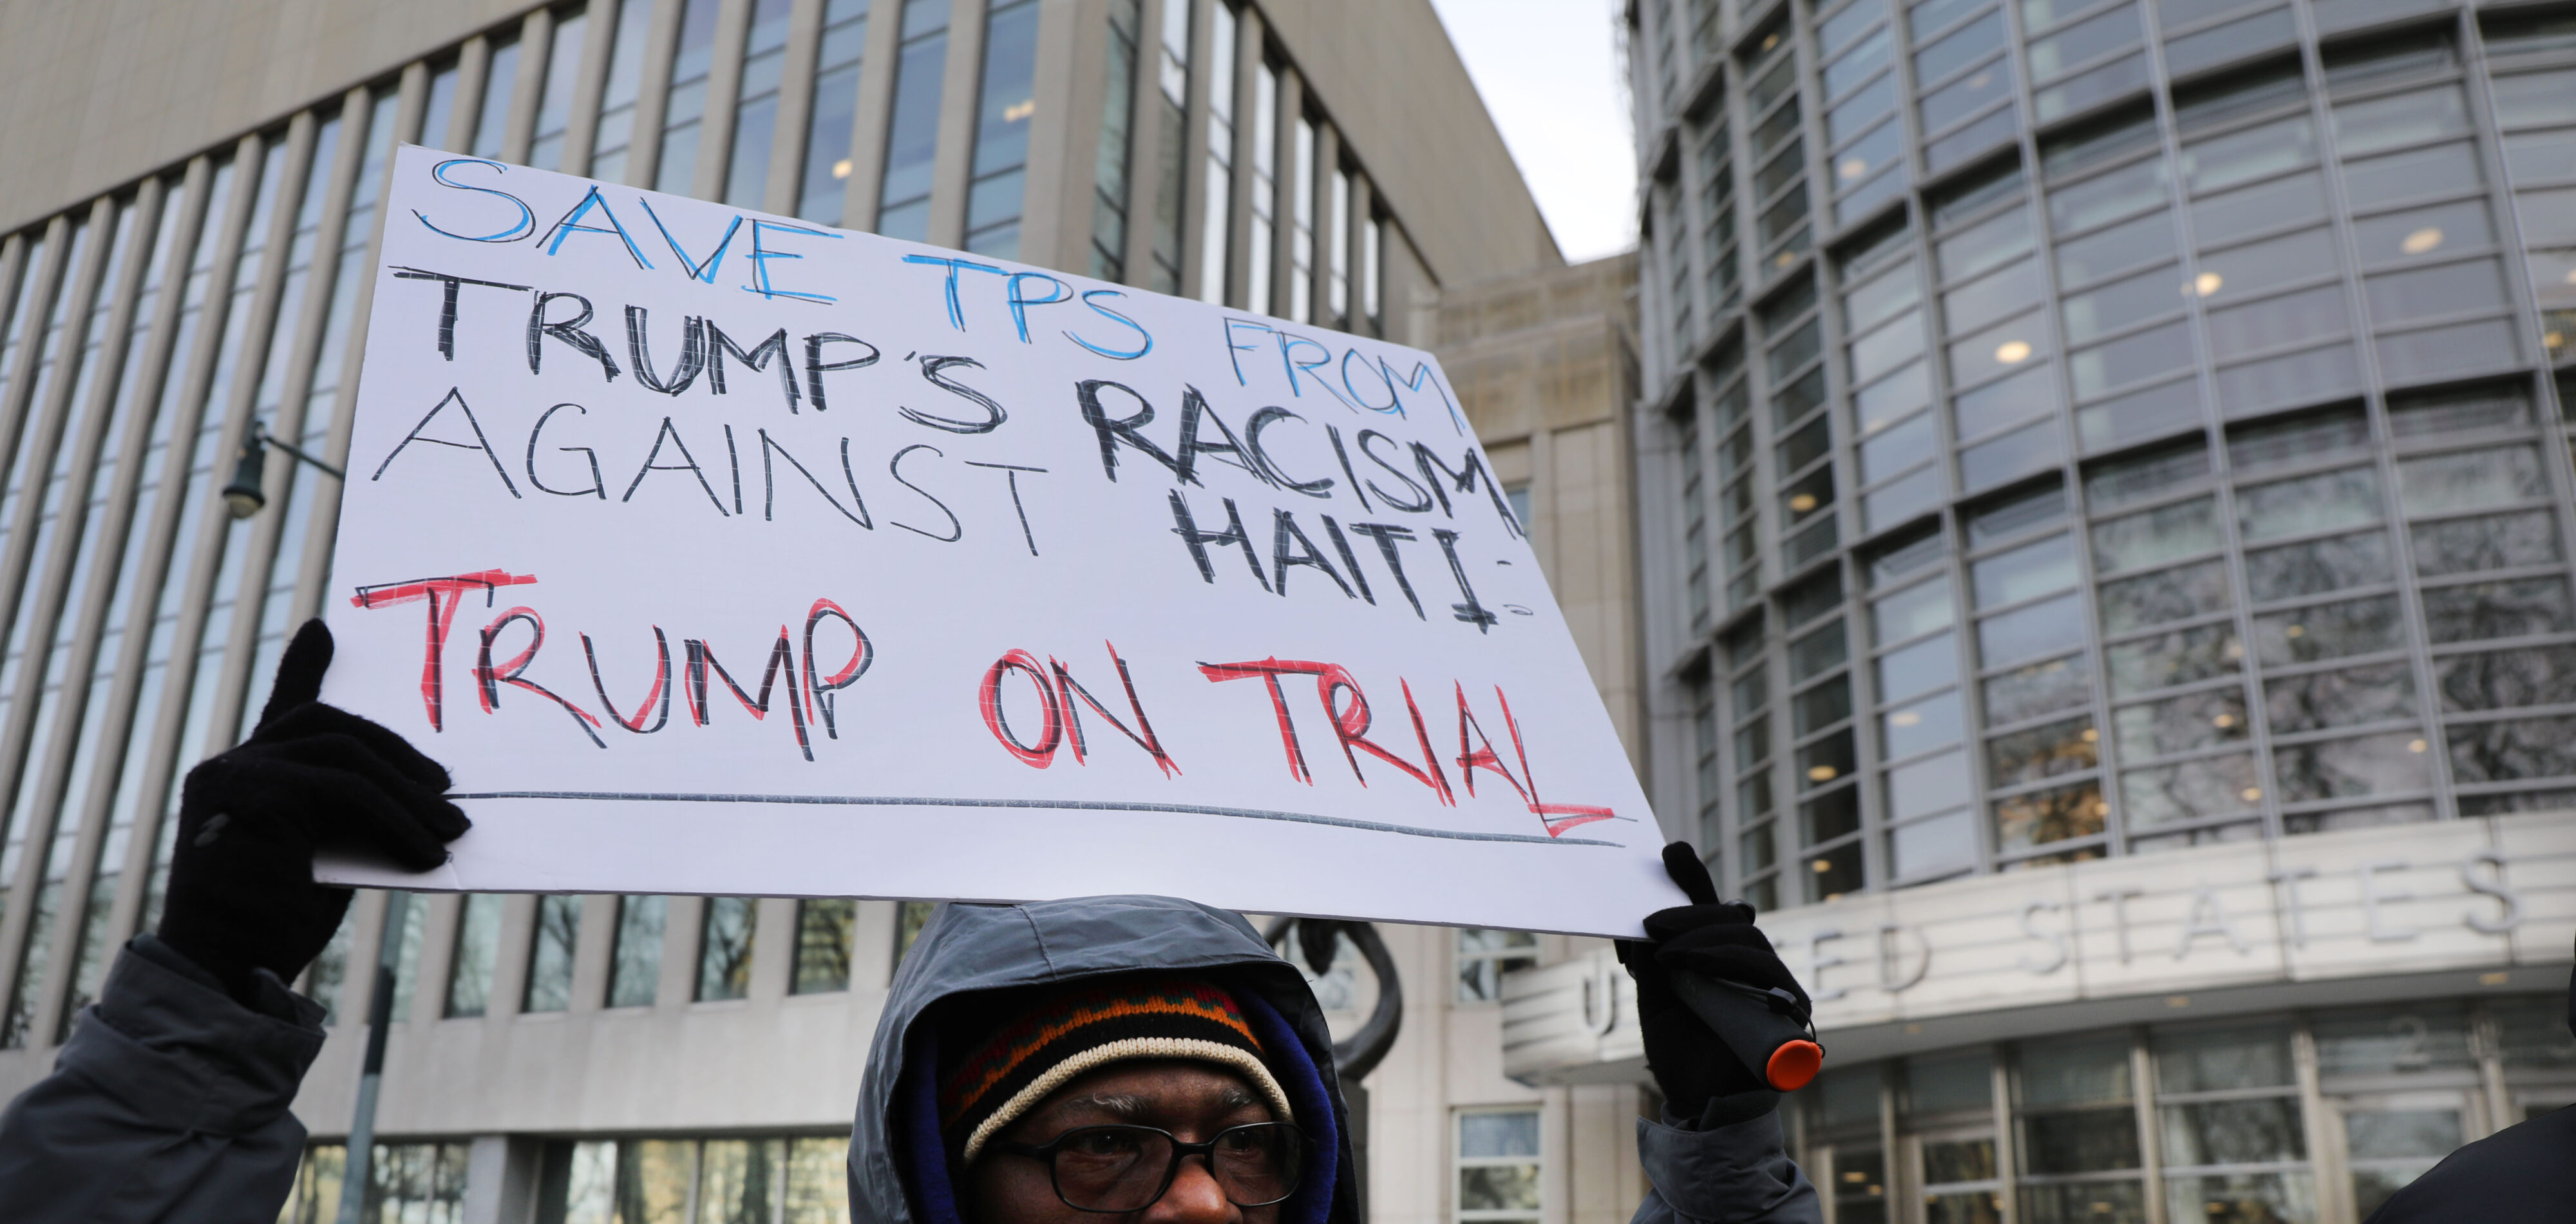 SAVE TPS FROM
TRUMP'S RACISM
AGAINST HAITI:
TRUMP ON TRIAL
STATES